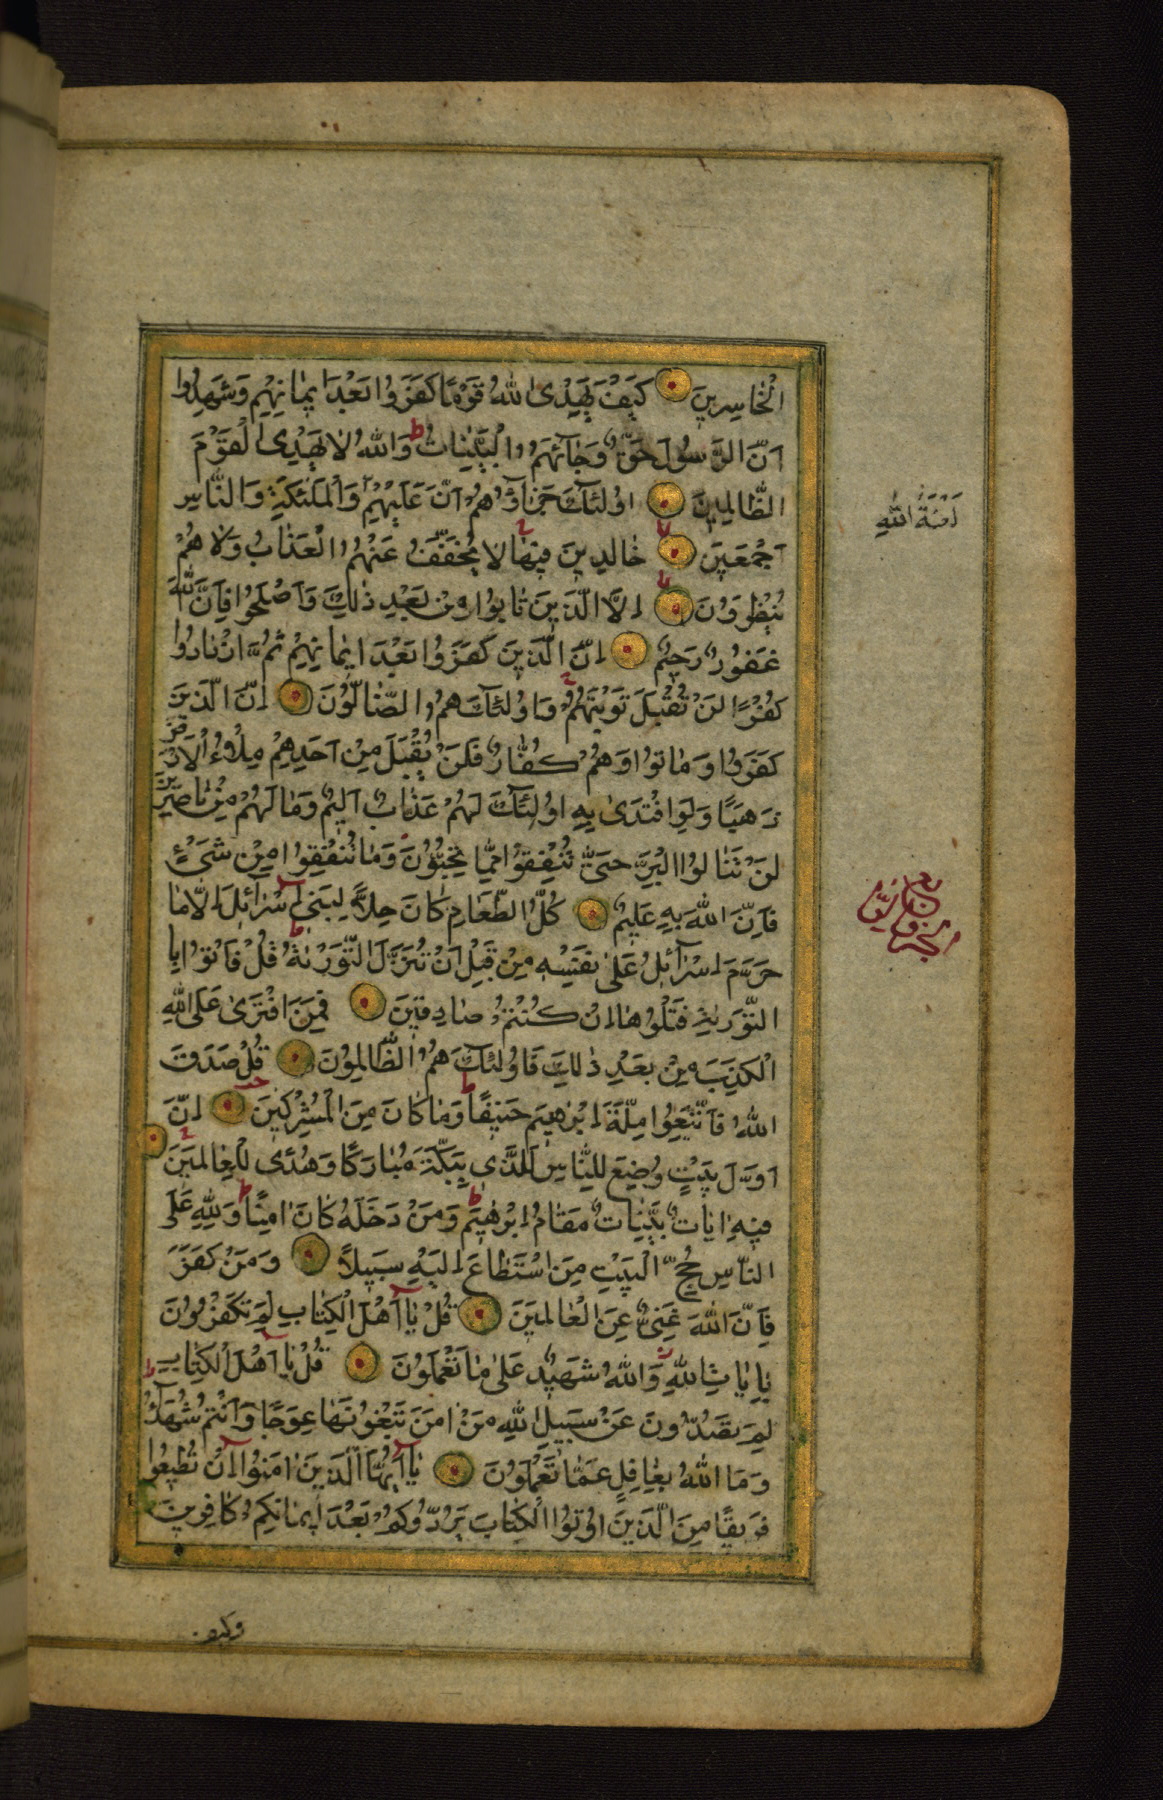 الْخَاسِرِينَ كَيْفَ يَهْدِى اللهُ قَوْمًا كَفَرُوا بَعْدَ ايمَانِهِمْ وَشَهِدُوا
اَنَّ الرَّسُولَ حَقٌّ وَجَآئَهُمُ الْبَيِّنَاتُ وَاللهُ لَا يَهْدِى الْقَوْمَ
الظَّالِمِينَ اُولٰئِكَ جَزَآؤُهُمْ اَنَّ عَلَيْهِمْ وَالْمَلٰئِكَةِ وَالنَّاسِ
لَعْنَةَ اللهِ
اَجْمَعِينَ خَالِدِينَ فِيهَا لَا يُخَفَّفُ عَنْهُمُ الْعَذَابُ وَلَا هُمْ
يُنْظَرُونَ اِلَّا الَّذِينَ تَابُوا مِنْ بَعْدِ ذٰلِكَ وَاَصْلَحُوا فَاِنَّ اللهَ
غَفُورٌ رَحِيمٌ اِنَّ الَّذِينَ كَفَرُوا بَعْدَ ايمَانِهِمْ ثُمَّ ازْدَادُوا
كُفْرًا لَنْ تُقْبَلَ تَوْبَتُهُمْ وَاُولٰئِكَ هُمُ الضَّالُّونَ اِنَّ الَّذِينَ
كَفَرُوا وَمَاتُوا وَهُمْ كُفَّارٌ فَلَنْ يُقْبَلَ مِنْ اَحَدِهِمْ مِلْءُ الْاَرْضِ
ذَهَبًا وَلَوِ افْتَدٰى بِهِ اُولٰئِكَ لَهُمْ عَذَابٌ اَلِيمٌ وَمَا لَهُمْ مِنْ نَاصِرِينَ
لَنْ تَنَالُوا الْبِرَّ حَتّٰى تُنْفِقُوا مِمَّا تُحِبُّونَ وَمَا تُنْفِقُوا مِنْ شَىْءٍ
فَاِنَّ اللهَ بِهِ عَلِيمٌ كُلُّ الطَّعَامِ كَانَ حِلًّا لِبَنِى اِسْرَآئِلَ اِلَّا مَا
حَرَّمَ اِسْرَآئِلُ عَلٰى نَفْسِهِ مِنْ قَبْلِ اَنْ تُنَزَّلَ التَّوْرٰيةُ قُلْ فَاْتُوا بِا
التَّوْرٰيةِ فَتْلُوهَا اِنْ كُنْتُمْ صَادِقِينَ فَمَنِ افْتَرٰى عَلَى اللهِ
الْكَذِبَ مِنْ بَعْدِ ذٰلِكَ فَاُولٰئِكَ هُمُ الظَّالِمُونَ قُلْ صَدَقَ
اللهُ فَاتَّبِعُوا مِلَّةَ اِبْرٰهِيمَ حَنِيفًا وَمَا كَانَ مِنَ الْمُشْرِكِينَ اِنَّ
اَوَّلَ بَيْتٍ وُضِعَ لِلنَّاسِ لَلَّذِى بِبَكَّةَ مُبَارَكًا وَهُدًى لِلْعَالَمِينَ
فِيهِ اٰيَاتٌ بَيِّنَاتٌ مَقَامُ اِبْرٰهِيمَ وَمَنْ دَخَلَهُ كَانَ اٰمِنًا وَلِلّٰهِ عَلَى
النَّاسِ حِجُّ الْبَيْتِ مَنِ اسْتَطَاعَ اِلَيْهِ سَبِيلًا وَمَنْ كَفَرَ
فَاِنَّ اللهَ غَنِىٌّ عَنِ الْعَالَمِينَ قُلْ يَا اَهْلَ الْكِتَابِ لِمَ تَكْفُرُونَ
بِاٰيَاتِ اللهِ وَاللهُ شَهِيدٌ عَلٰى مَا تَعْمَلُونَ قُلْ يَا اَهْلَ الْكِتَابِ
لِمَ تَصُدُّونَ عَنْ سَبِيلِ اللهِ مَنْ اٰمَنَ تَبْغُونَهَا عِوَجًا وَاَنْتُمْ شُهَدَآءُ
وَمَا اللهُ بِغَافِلٍ عَمَّا تَعْمَلُونَ يَا اَيُّهَا الَّذِينَ اٰمَنُوا اِنْ تُطِيعُوا
فَرِيقًا مِنَ الَّذِينَ اُوتُوا الْكِتَابَ يَرُدُّوكُمْ بَعْدَ اِيمَانِكُمْ كَافِرِينَ
وكيف